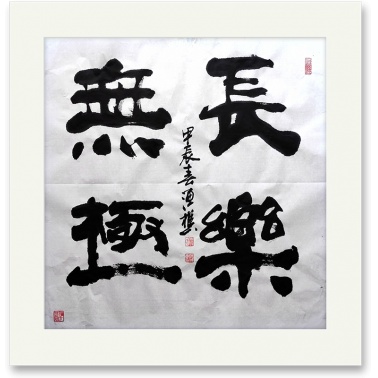 長樂
無極
甲辰春